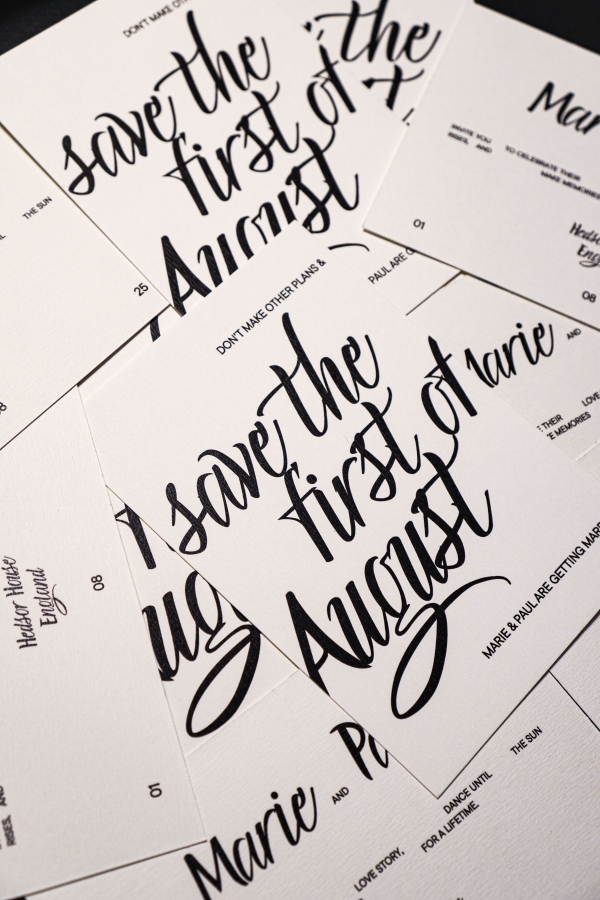 DON'T MAKE
save the
first of
August
the
Mar
INVITE YOU TO CELEBRATE THEIR
RISES, AND MAKE MEMORIES
01
Hedsor
Eng
08
THE SUN
25
PAUL ARE
DON'T MAKE OTHER PLANS &
save the
first of
August
MARIE & PAUL ARE GETTING MARR
Marie
AND
LOVE
THEIR
E MEMORIES
Hedsor House
England
08
01
RISES, AND
ug
Marie AND Pa
THE SUN
DANCE UNTIL
LOVE STORY, FOR A LIFETIME.